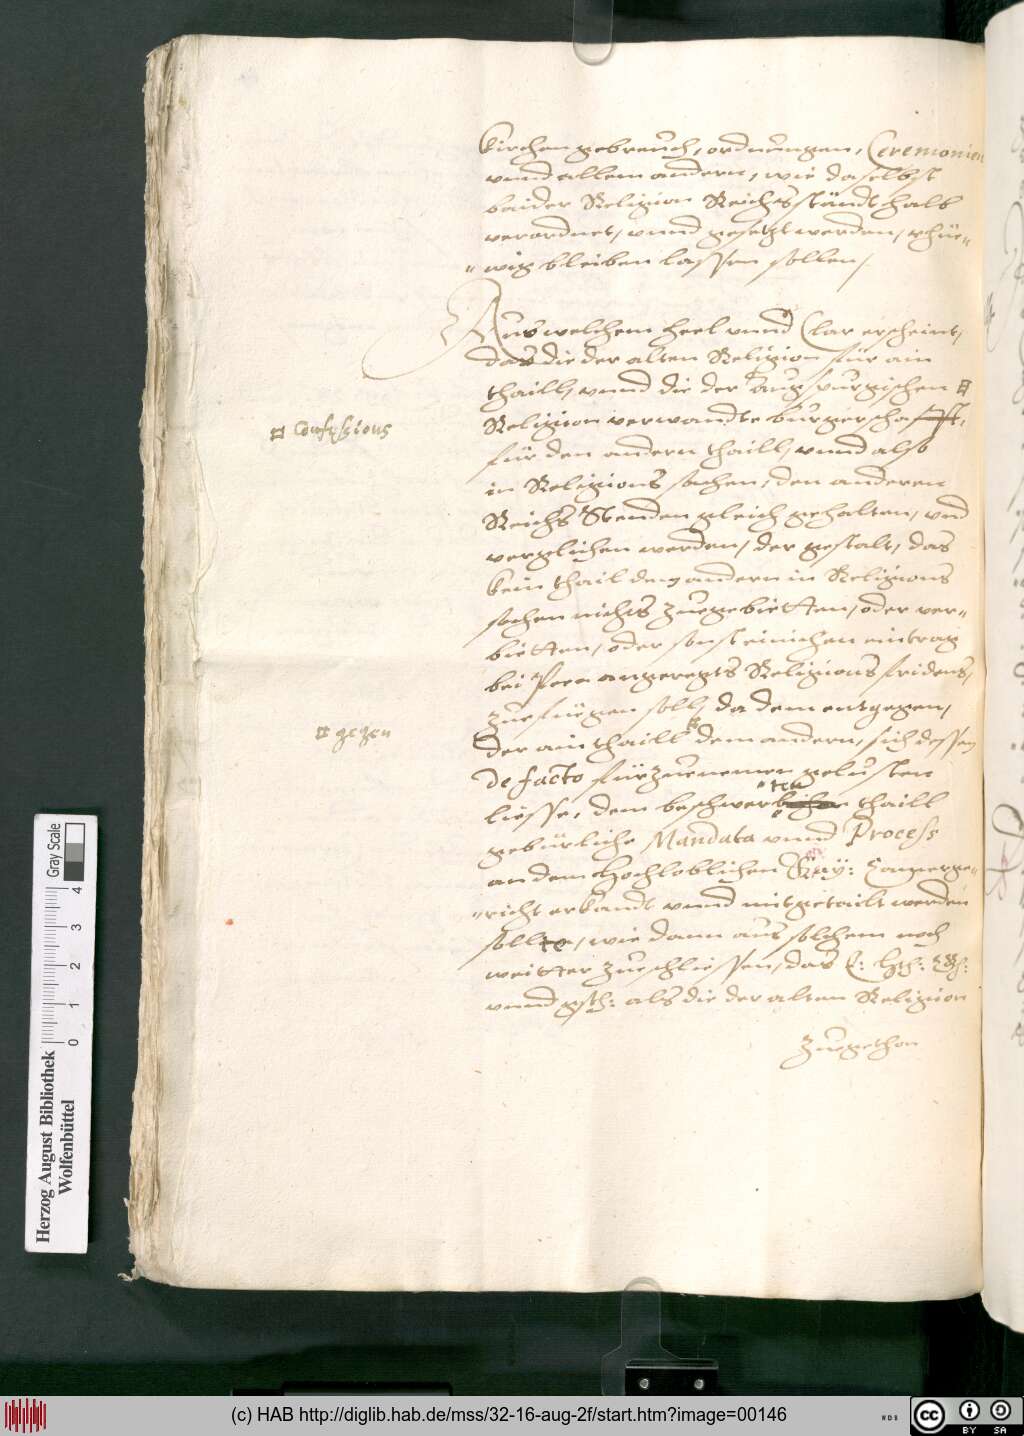 Kirchengebreuch, ordnungen, Ceremonien
vnnd allem andern, wie daselbst
baider Religion Reichsständt halb
verordnet, vnnd gesetzt werden, rhüe-
wig bleiben lassen sollen,
Aus welchem heel vnnd Clar erscheint,
das die der alten Religion für ain
thaill, vnnd die der augspurgischen ¤
¤ Confessions
Religion verwandte burgerschafft,
für den andern thaill, vnnd also
in Religions sachen, den anderen
Reichs Stenden gleich gehalten, vnd
verglichen werden, der gestalt, das
kein thail dem andern in Religions
sachen nichts zuegebietten, oder ver-
bietten, oder sonst einichen eintrag
bei Peen angeregts Religions fridens,
zuefüegen soll, da dem entgegen,
¤ gegen
der ain thaill ¤ dem andern, sich dessen
de facto fürzuenemen gelusten
liesse, dem beschwerten thaill
gebürliche Mandata vnnd Process
an dem Hochloblichen Kay: Camerge-
richt erkandt vnnd mitgetailt werden
solle, wie dann aus solchem noch
weitter zueschliessen, das
vnnd als die der alten Religion
zuegethon
Herzog August Bibliothek
Wolfenbüttel
Gray Scale
0 1 2 3 4
(c) HAB http://diglib.hab.de/mss/32-16-aug-2f/start.htm?image=00146
WDB
cc BY SA